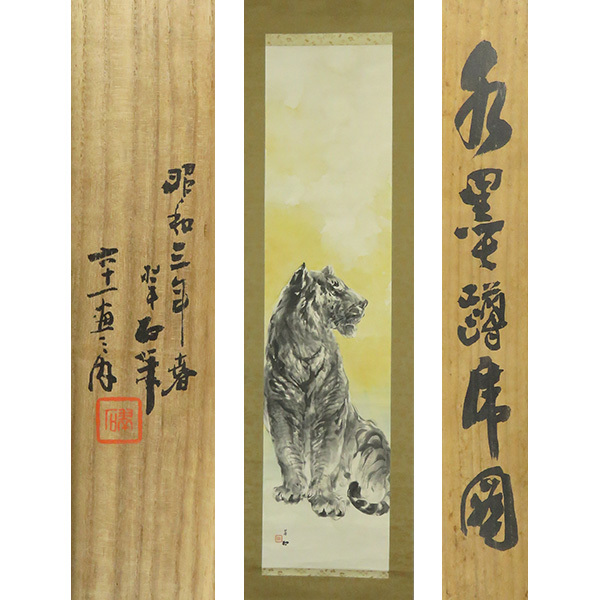 水墨蹲虎圖
昭和三年春
翠石筆
六十一画之内